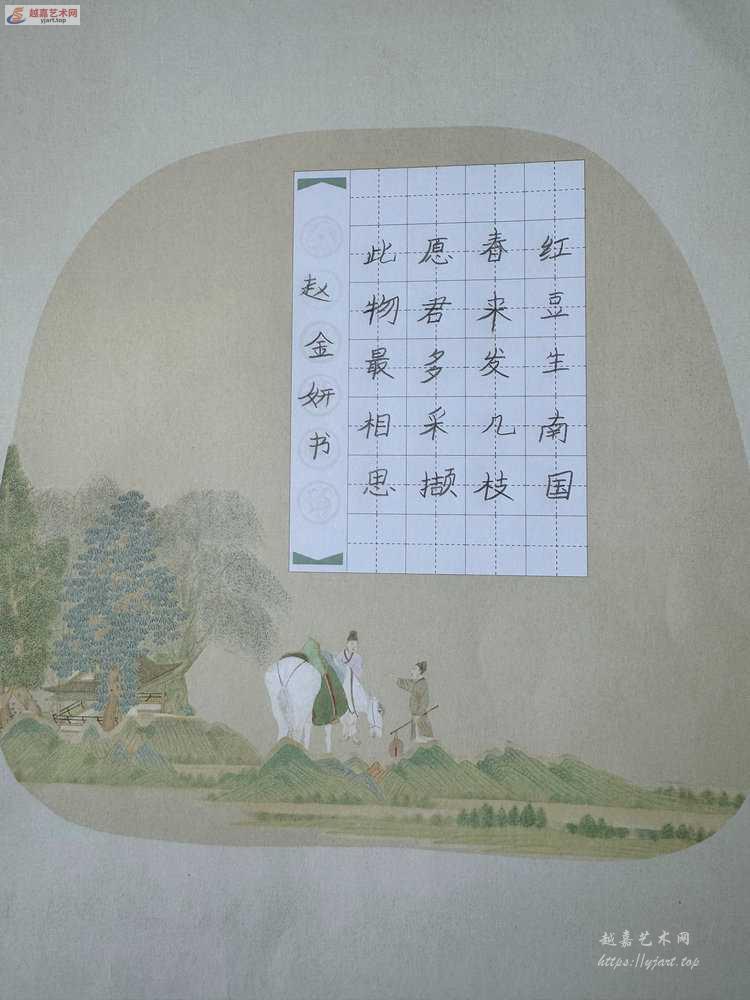 越嘉艺术网
yjart.top
红豆生南国
春来发几枝
愿君多采撷
此物最相思
赵金妍书
越嘉艺术网
https://yjart.top